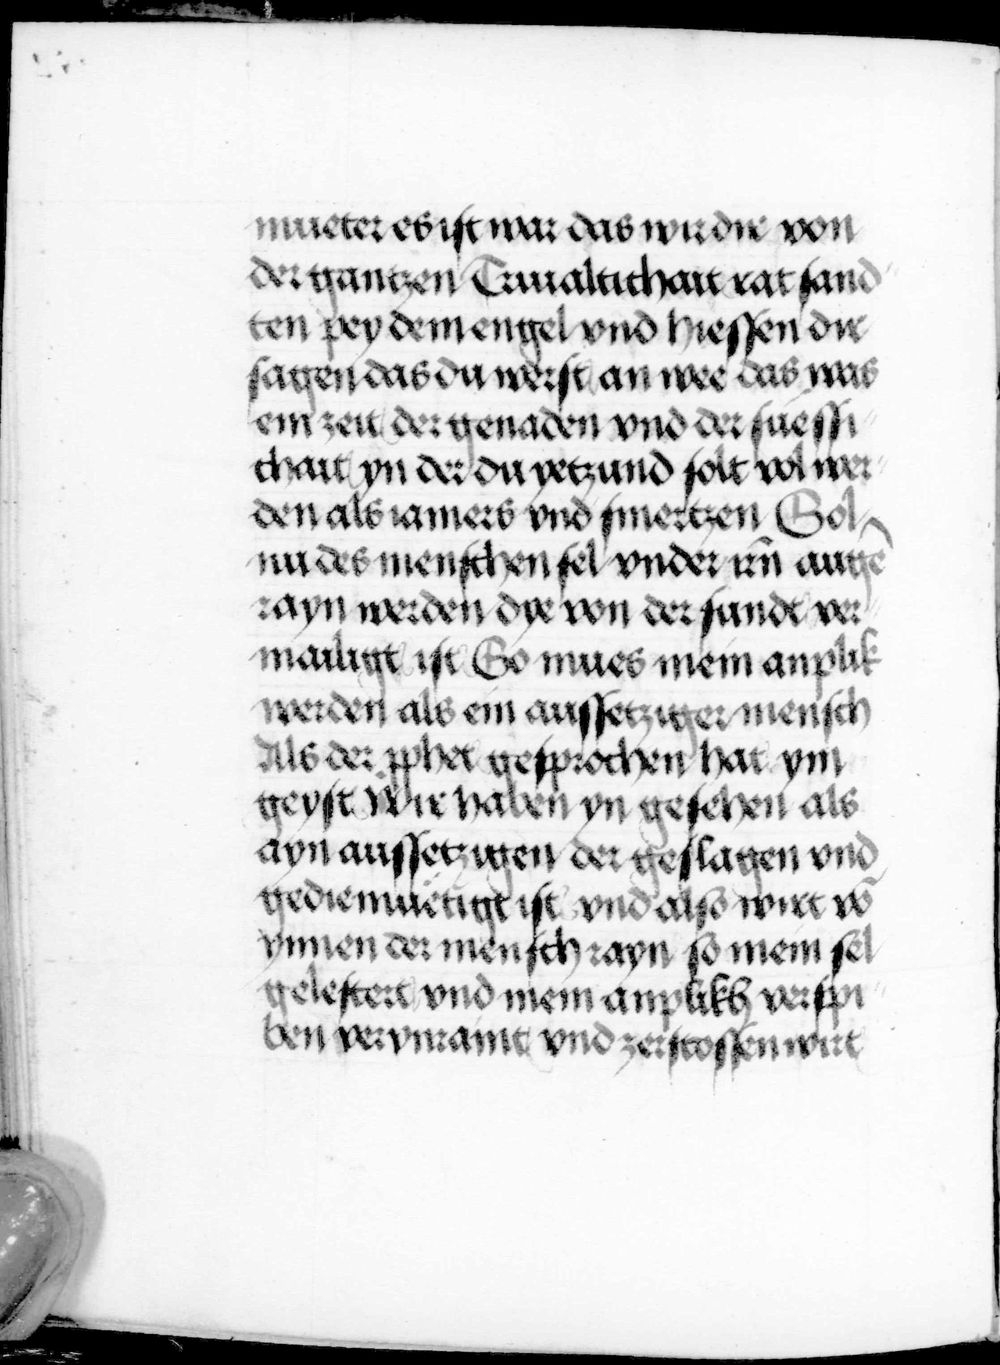 mueter es ist war das wir die von
der gantzen Triualtichait rat sand⸗
ten pey dem engel vnd hiessen dir
sagen das du werst an wee das was
ein zeit der genaden vnd der suessi⸗
chait yn der du yetzund solt vol wer⸗
den als iamers vnd smertzen Sol
nu des menschen sel vnder irn̄ augē
rayn werden dye von der sunde ver⸗
mailigt ist So mues mein anplik
werden als ein aussetziger mensch
Als der pphet gesprochen hat ym
geyst Wir haben yn gesehen als
ayn aussetzigen der geslagen vnd
gediemuetigt ist vnd also wirt vō
ynnen der mensch rayn so mein sel
gelestert vnd mein anplikh verspi⸗
ben verunraint vnd zerstossen wirt